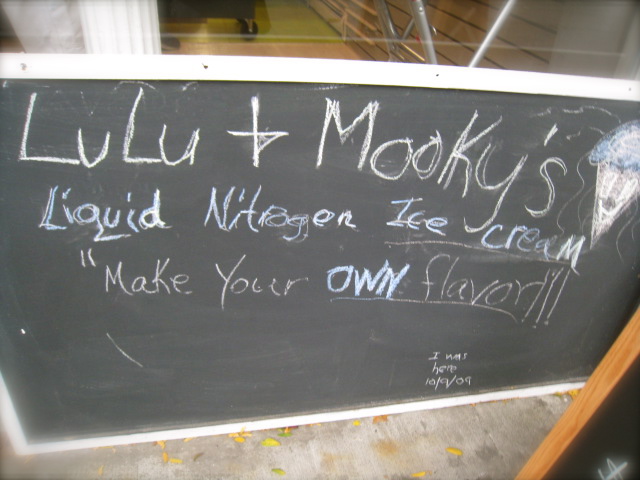 LuLu + Mooky's
Liquid Nitrogen Ice cream
"Make Your OWN flavor!!!
I was
here
10/9/09